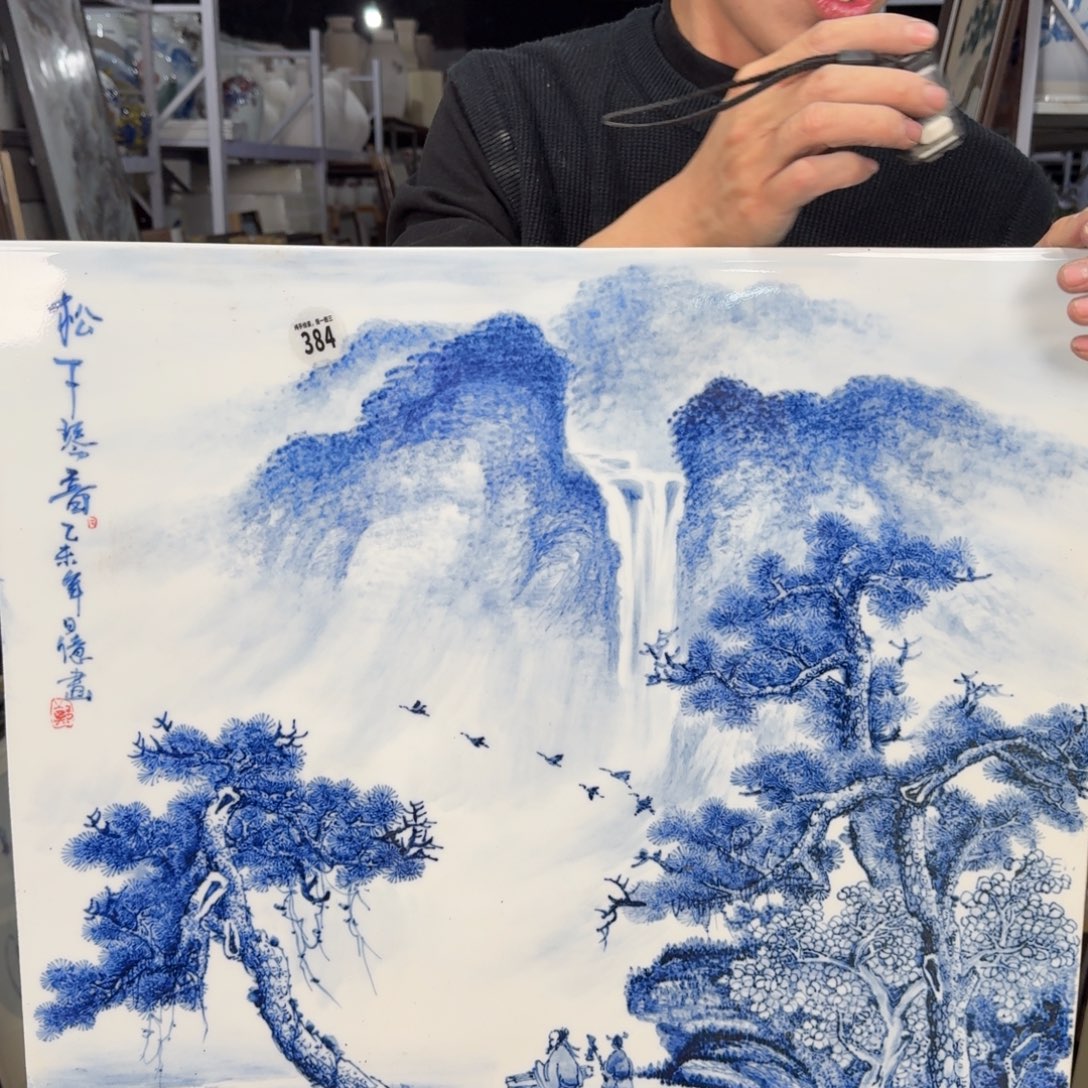 松下琴音
乙未年日憶畫
384